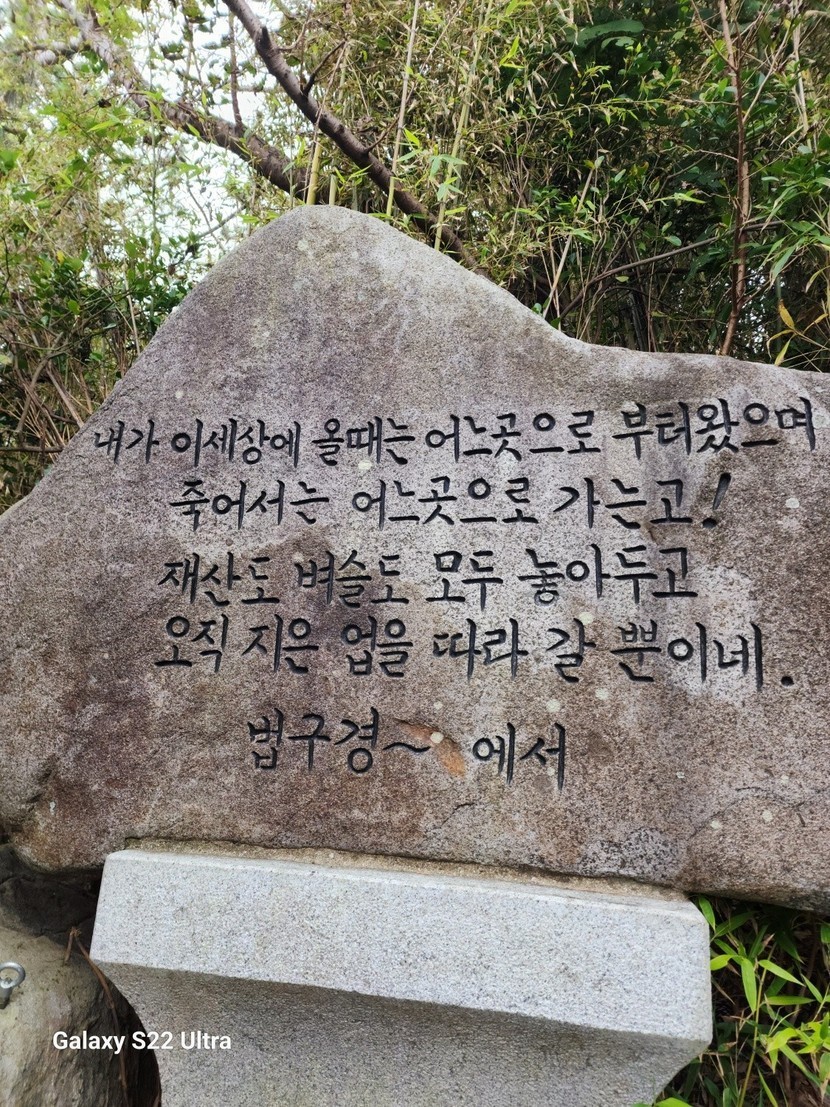 내가 이세상에 올때는 어느곳으로 부터왔으며
죽어서는 어느곳으로 가는고!
재산도 벼슬도 모두 놓아두고
오직 지은 업을 따라 갈 뿐이네.
법구경~ 에서
Galaxy S22 Ultra